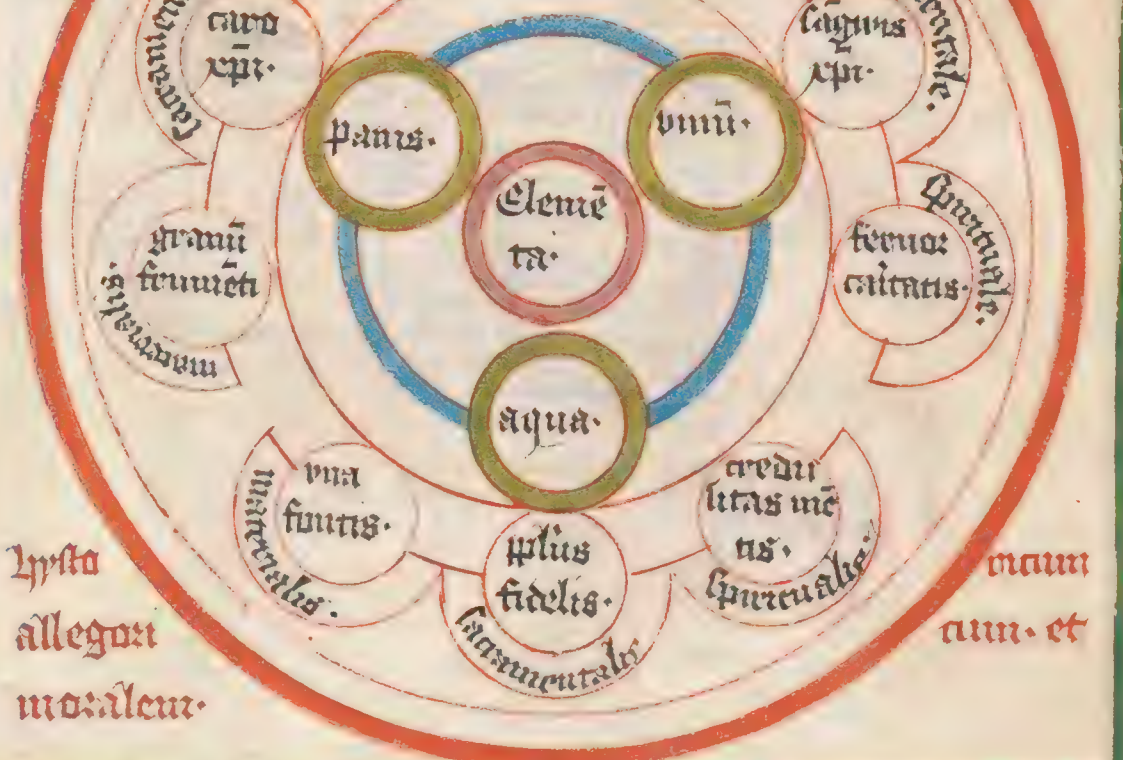 caro
xp̄i·
sāguis
xp̄i·
ētale·
panis·
vinū·
Elemē
ta·
granū
frumēti
materialis·
feruor
caritatis·
Spirituale·
aqua·
vna
fontis·
materialis·
pplūs
fidelis·
sacramentalis
credu
litas mē
tis·
Spiritualis·
hysto
allegori
moralem·
ricum
cum· et